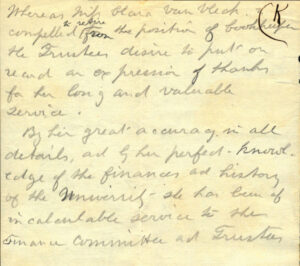 Whereas Miss Clara Van Vleck
K
to retire
compelled from the position of bookkeeper
the Trustees desire to put on
record an expression of thanks
for her long and valuable
service.
By her great accuracy in all
details, ad by her perfect knowl-
edge of the finances ad history
of the University she has been of
incalculable service to the
Finance Committee ad Trustees